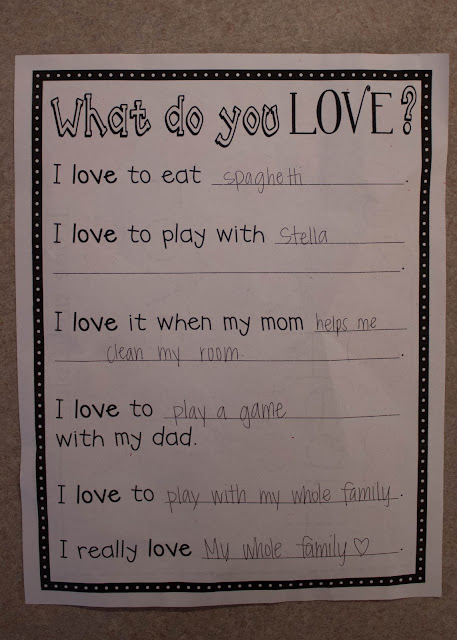 What do you LOVE?
I love to eat spaghetti.
I love to play with Stella
.
I love it when my mom helps me
clean my room.
I love to play a game
with my dad.
I love to play with my whole family.
I really love My whole family♡.